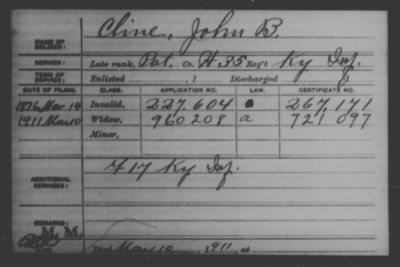 NAME OF SOLDIER: Cline, John B.
SERVICE: Late rank, Pvt. Co. H, 35 Reg't Ky Inf.
TERM OF SERVICE: Enlisted , 1 Discharged , 1
DATE OF FILING. CLASS. APPLICATION NO. LAW. CERTIFICATE NO.
1876 Mar 14 Invalid, 227.604 267.171
1911 Mar 10 Widow, 960208 a 721 097
Minor,
ADDITIONAL SERVICES: 417 Ky Inf.
REMARKS:
M. M.
Mar 10 , 1911, at